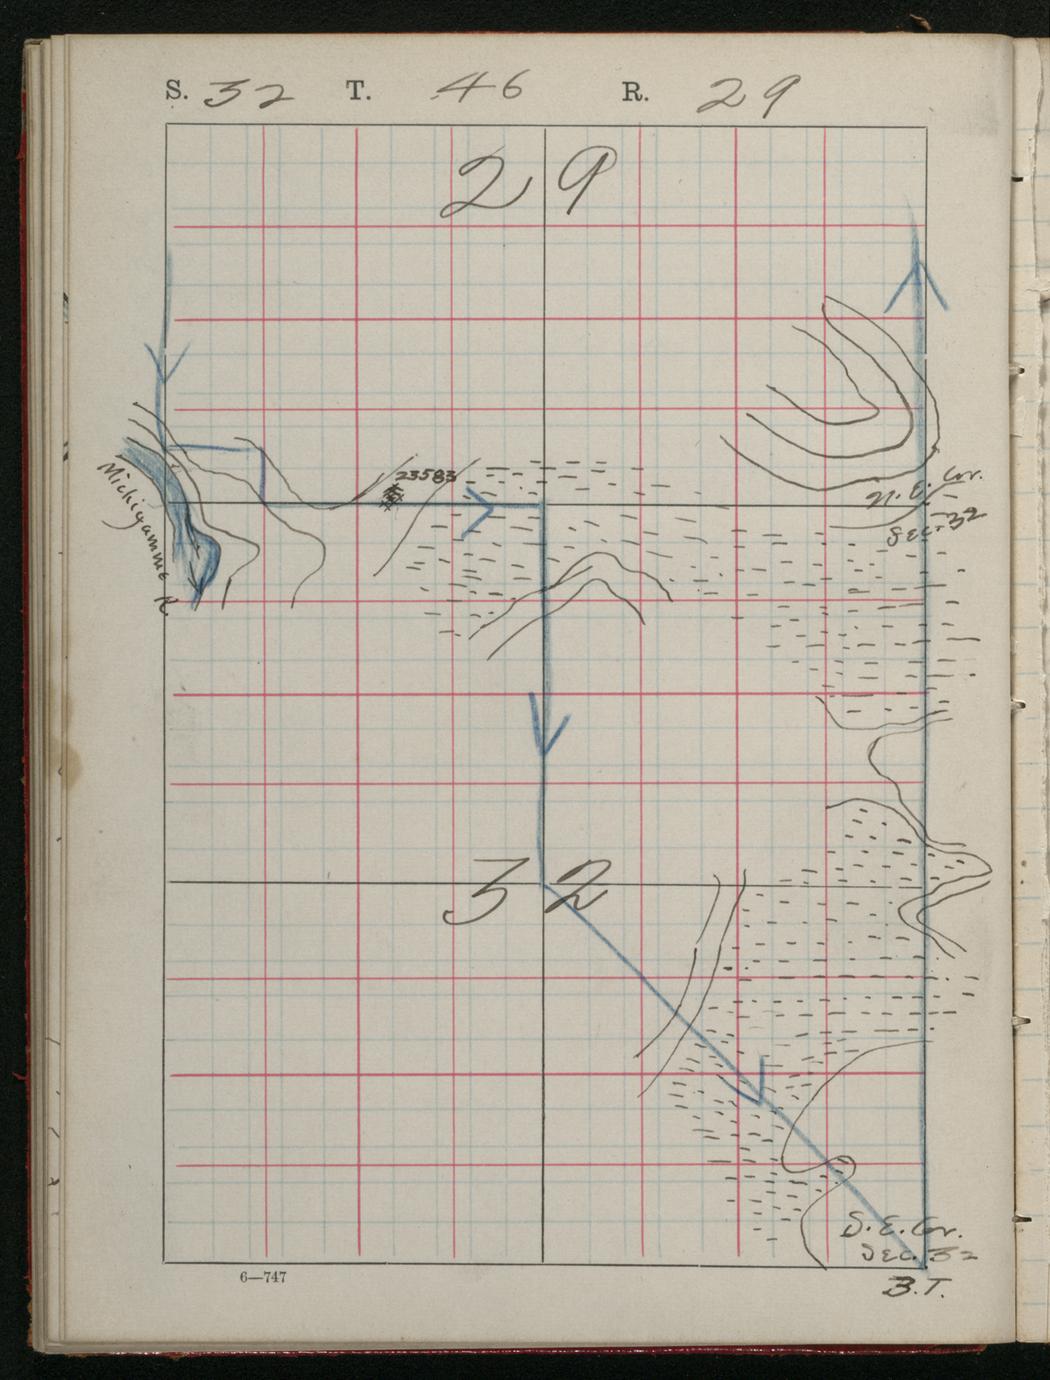 S. 32 T. 46 R. 29
29
23583
N. E. Cor.
Sec. 32
Michigamme R.
32
S. E. Cor.
Sec. 32
B.T.
6—747